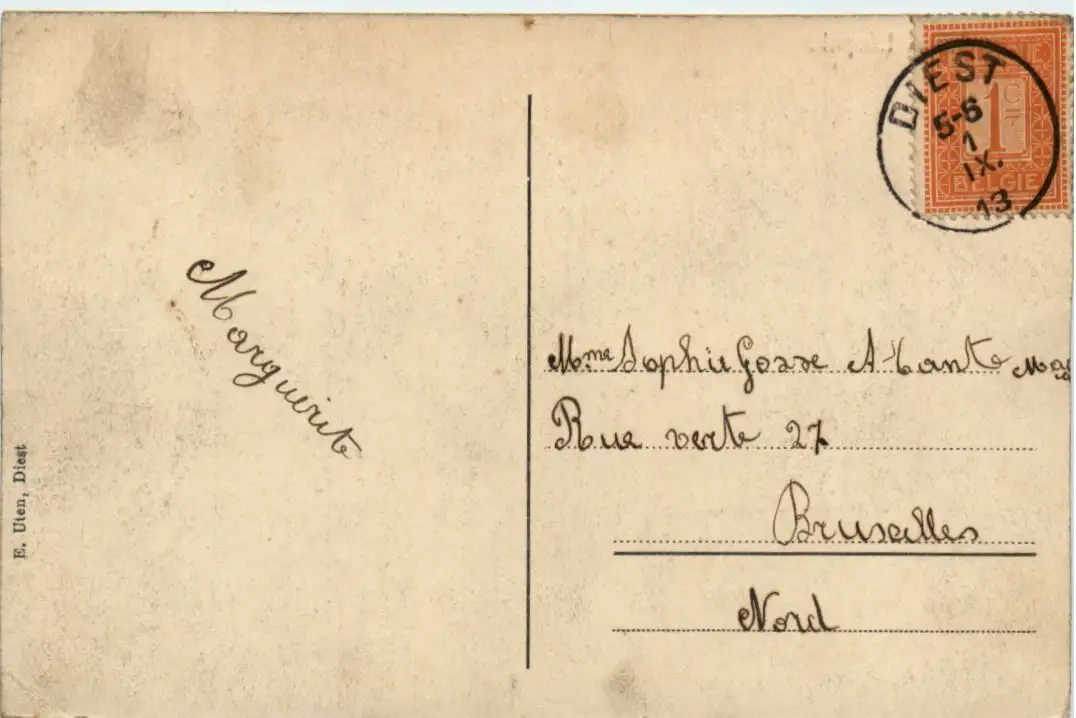 DIEST
5-6
1
IX.
13
1 Ct
BELGIE
Marguerite
Mme Sophie Gosse
Rue verte 27
Bruxelles
Nord
E. Uten, Diest